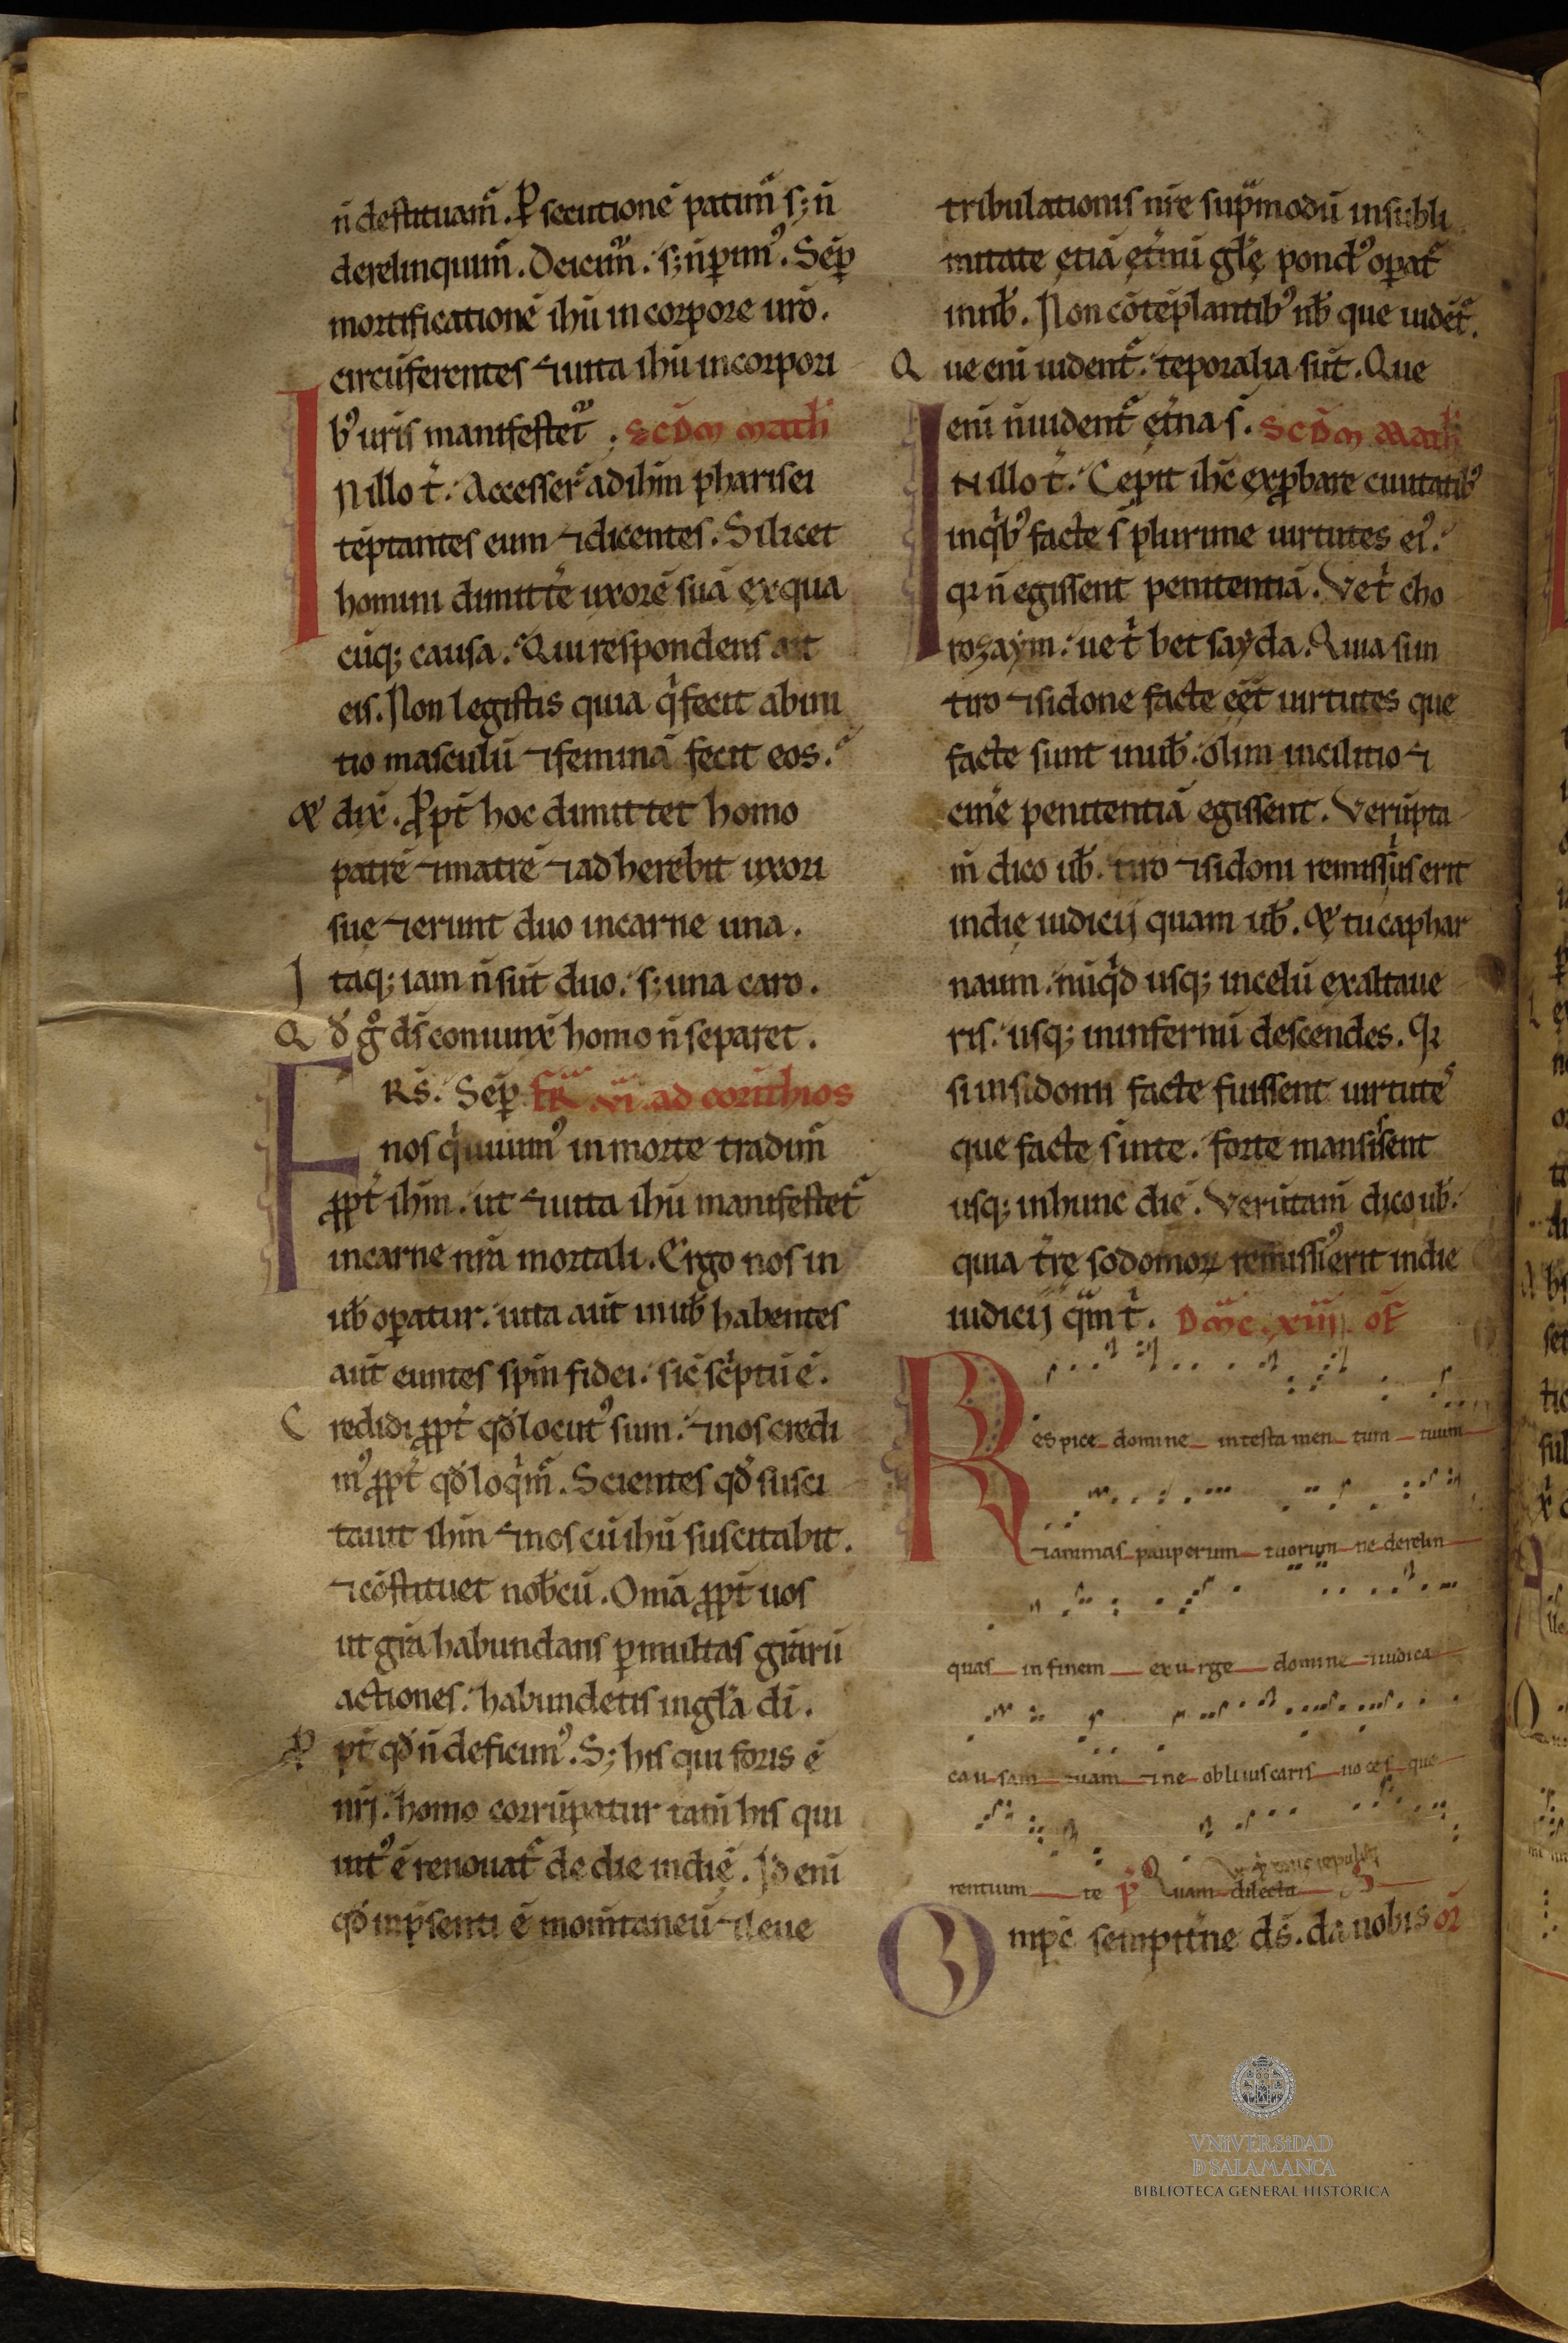 n̄ destituam᷑. ꝑsecutionē patim᷑ s; n̄
derelinquim᷑. Deicim᷑. s; n̄ ꝑimꝰ. Sēꝑ
mortificationē ihū in corpore nr̄o.
circūferentes ⁊ uita ihū in corpori
bꝰ nr̄is manifestet᷑. Scd̄m math̄
I N illo t̄. Accesser̄ ad ihm̄ pharisei
tēptantes eum ⁊ dicentes. Si licet
homini dimitte᷑ uxorē suā ex qua
cūq; causa. Qui respondens ait
eis. Non legistis quia q̇ fecit ab ini
tio masculū ⁊ feminā fecit eos.
& dix̄. Ꝓpt̄ hoc dimittet homo
patrē ⁊ matrē ⁊ adherebit uxori
sue ⁊ erunt duo in carne una.
I taq; iam n̄ sūt duo. s; una caro.
Q d̄ g̊ ds̄ coniunx̄ homo n̄ separet.
F Rs̄. Sēꝑ fr̄ vi ad corīthios
nos q̇ uiuimꝰ in morte tradim᷑
ꝓpt̄ ihm̄. ut ⁊ uita ihū manifestet᷑
in carne nr̄a mortali. Ergo nos in
ub̄ oꝑatur. uita aūt in ub̄ habentes
aūt eumtes spm̄ fidei. sic̄ sċptū ē.
C redidi ꝓpt̄ qd̄ locutꝰ sum. ⁊ nos credi
mꝰ ꝓpt̄ qd̄ loq̇m᷑. Scientes qd̄ susci
tauit ihm̄ ⁊ nos cū ihū suscitabit.
⁊ cōstituet nob̄cū. Om̄a ꝓpt̄ uos
ut gr̄a habundans ꝑ multas gr̄arū
actiones. habundetis in gl̄a di.
Ꝓ pt̄ qd̄ n̄ deficimꝰ. S; his qui foris ē
nr̄j. homo corrūpatur tam̄ his qui
intꝰ ē renouat᷑ de die in diē. Id eni
qd̄ in p̄senti ē momīntaneū ⁊ leue
tribulationis nr̄e sup̄ modū in subli
mitate etiā et̄nū gl̄e pondꝰ oꝑat᷑
in nb̄. Non cōtēplantibꝰ nb̄ que uidēt᷑.
Q ue eni uident᷑. tēporalia sūt. Que
eni n̄ uident᷑ et̄na s̄. Scd̄m Math̄
I N illo t̄. Cepit ihc̄ exꝓbare ciuitatibꝰ
in q̇bꝰ facte s̄ plurime uirtutes eiꝰ.
qꝛ n̄ egissent penitentiā. Ve t̄ cho
rozaym. ue t̄ betsayda. Quia si in
tiro ⁊ sidone facte eēt uirtutes que
facte sunt in ub̄. olim in cilitio ⁊
cine᷑ penitentiā egissent. Verūpta
m̄ dico ub̄. tiro ⁊ sidoni remissiꝰ erit
in die iudicij quam ub̄. & tu caphar
naum. nūq̇d usq; in celū exaltaue
ris. usq; in infernū descendes. Qꝛ
si in sidonii facte fuissent uirtutes
que facte s̄ in te. forte mansissent
usq; in hunc diē. Verūtam̄ dico ub̄.
quia tr̄e sodomoꝝ remissiꝰ erit in die
iudicij qm̄ t̄. Dn̄ic̄. xiiij. of̄
R espice domine in testamen tum tuum
⁊ animas pauperum tuorum ne derelin
quas in finem exurge domine ⁊ iudica
causam tuam ⁊ ne obliuiscaris uoces que
rentium te p̄ Quam dilecta
O mp̄c sempit̄ne ds̄. da nobis or̄
VNiVERSiDAD
D SALAMANCA
BIBLIOTECA GENERAL HISTÓRICA